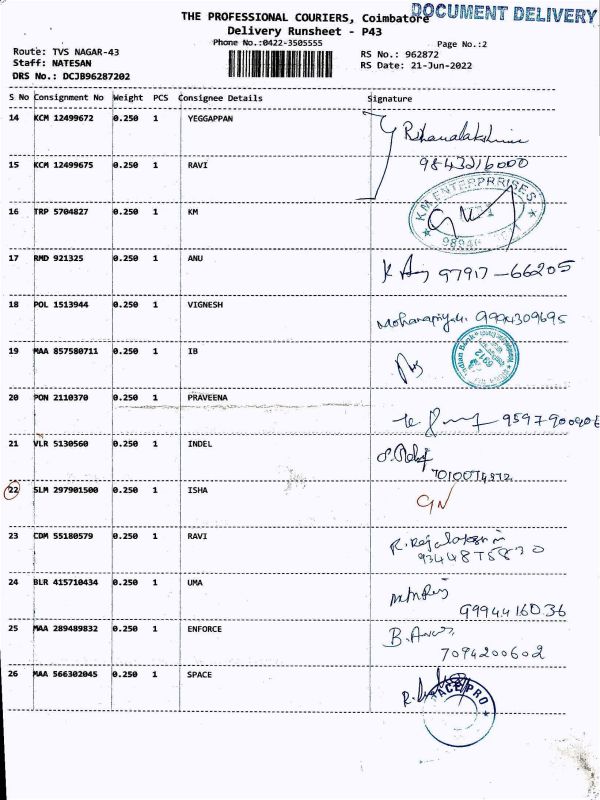 DOCUMENT DELIVERY
THE PROFESSIONAL COURIERS, Coimbatore
Delivery Runsheet - P43
Phone No.:0422-3505555
Page No.:2
Route: TVS NAGAR-43
RS No.: 962872
Staff: NATESAN
RS Date: 21-Jun-2022
DRS No.: DCJB96287202
S No Consignment No Weight PCS Consignee Details Signature
14 KCM 12499672 0.250 1 YEGGAPPAN
9843216000
15 KCM 12499675 0.250 1 RAVI
KM ENTERPRRISES
16 TRP 5704827 0.250 1 KM
17 RMD 921325 0.250 1 ANU
97917-66205
18 POL 1513944 0.250 1 VIGNESH
9994309695
19 MAA 857580711 0.250 1 IB
Indian Bank
20 PON 2110370 0.250 1 PRAVEENA
21 VLR 5130560 0.250 1 INDEL
22 SLM 297901500 0.250 1 ISHA
GN
23 CDM 55180579 0.250 1 RAVI
24 BLR 415710434 0.250 1 UMA
9994416036
25 MAA 289489832 0.250 1 ENFORCE
7094200602
26 MAA 566302045 0.250 1 SPACE